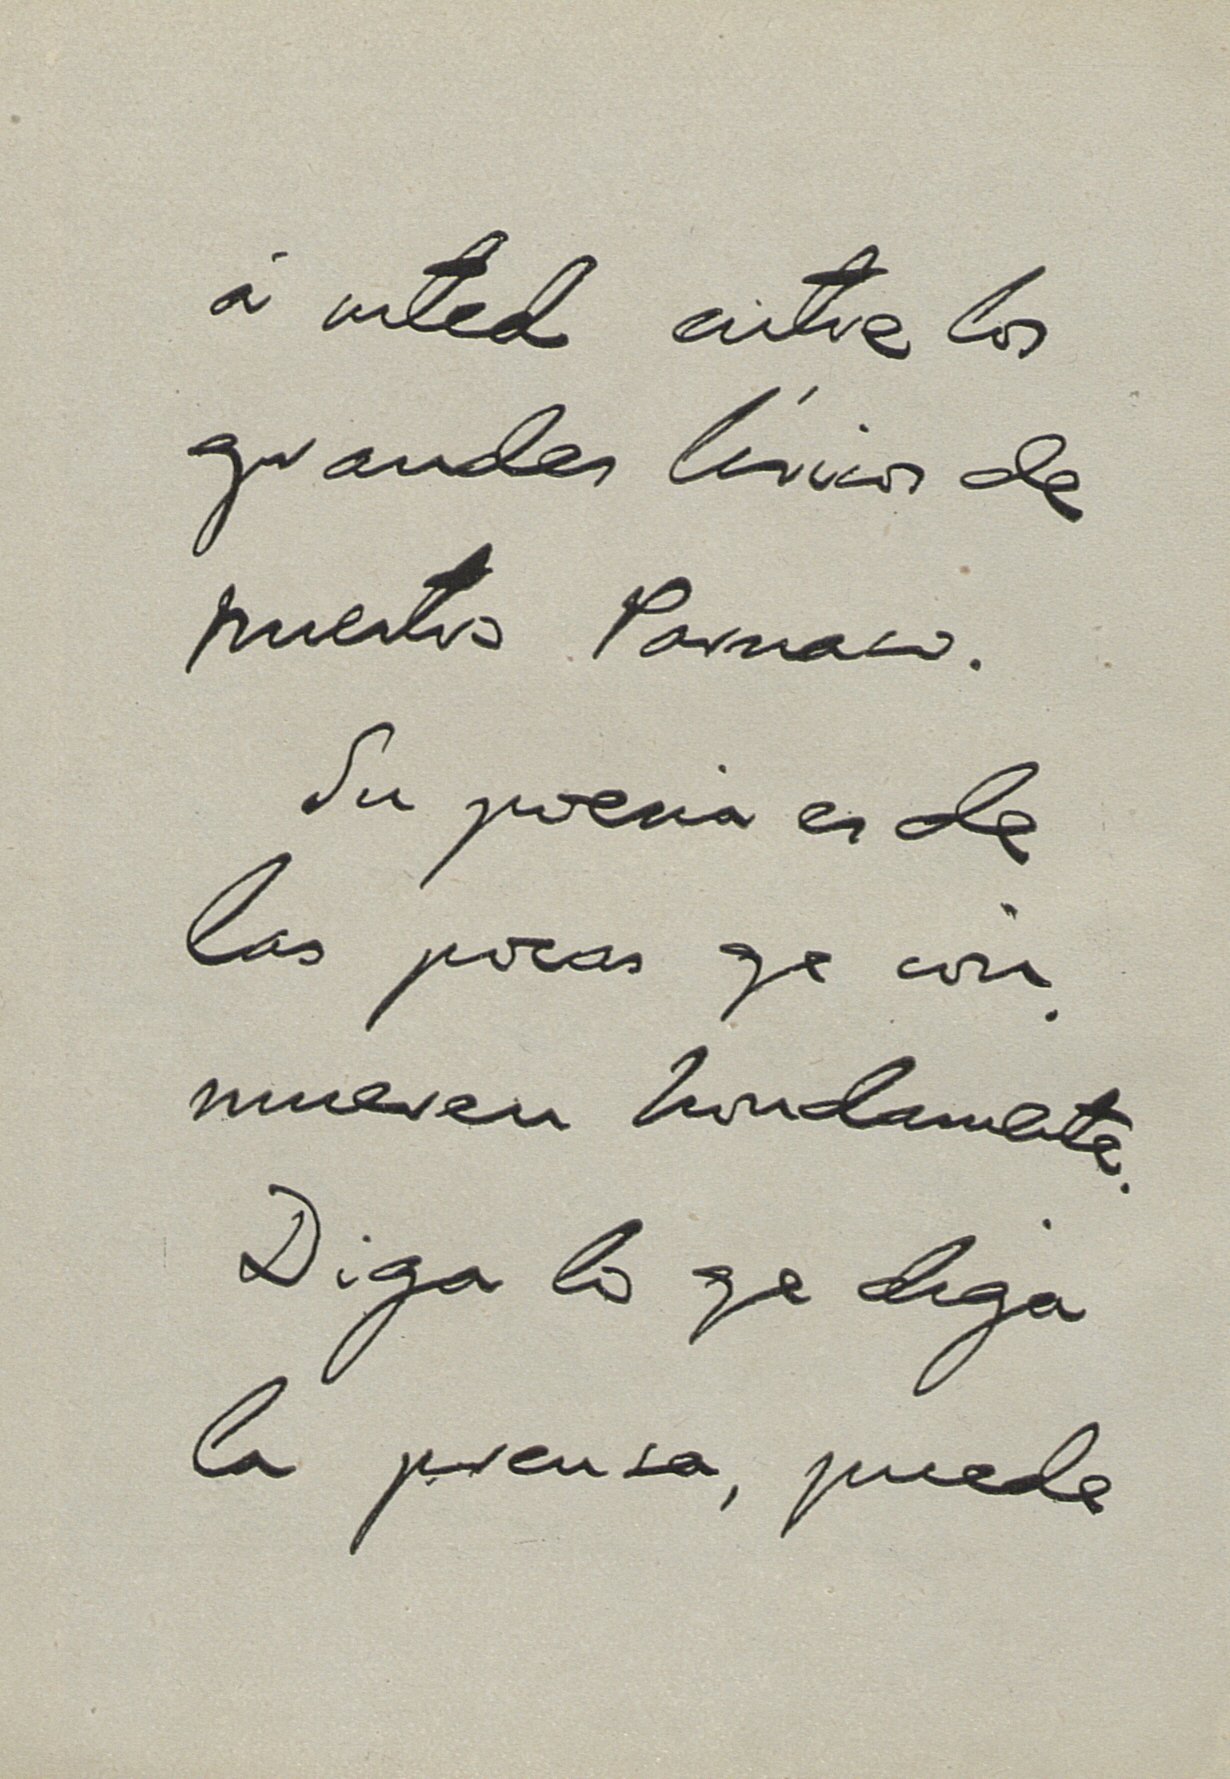 á usted entre los
grandes líricos de
nuestro Parnaso.
Su poesia es de
las pocas qe con
mueven hondamente.
Diga lo qe diga
la prensa, puede